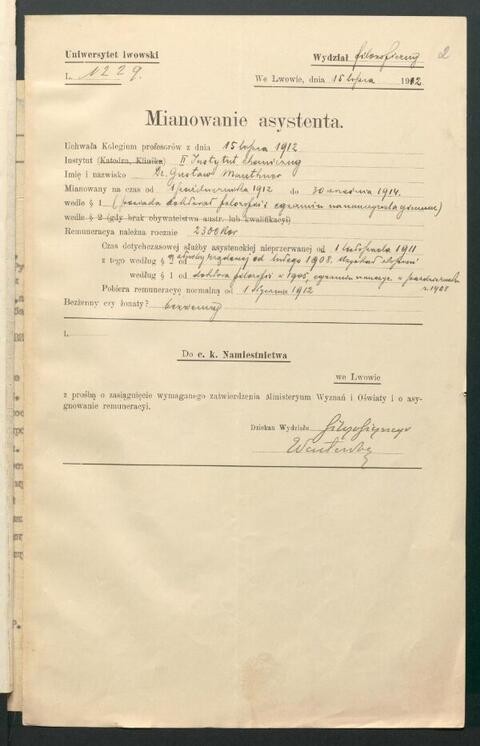 Uniwersytet lwowski
Wydział filozoficzny 2
L. 1229.
We Lwowie, dnia 15 lipca 1912
Mianowanie asystenta.
Uchwała Kolegium profesorów z dnia 15 lipca 1912
Instytut (Katedra, Klinika) II Instytut chemiczny
Imię i nazwisko Dr. Gustaw Mauthner
Mianowany na czas od 1 października 1912 do 30 września 1914.
wedle § 1 (posiada doktorat filozofii i egzamin
wedle § 2 (gdy brak obywatelstwa austr. lub kwalifikacyi)
Remuneracya należna rocznie 2300 Kor
Czas dotychczasowej służby asystenckiej nieprzerwanej od 1 listopada 1911
z tego według § 2 od lutego 1908.
według § 1 od doktora filozofii w 1905, egzamin naucz. w październiku
r. 1908
Pobiera remuneracyę normalną od 1 stycznia 1912
Bezżenny czy żonaty? bezżenny
L.
Do c. k. Namiestnictwa
we Lwowie
z prośbą o zasiągnięcie wymaganego zatwierdzenia Ministeryum Wyznań i Oświaty i o asy-
gnowanie remuneracyi.
Dziekan Wydziału filozoficznego